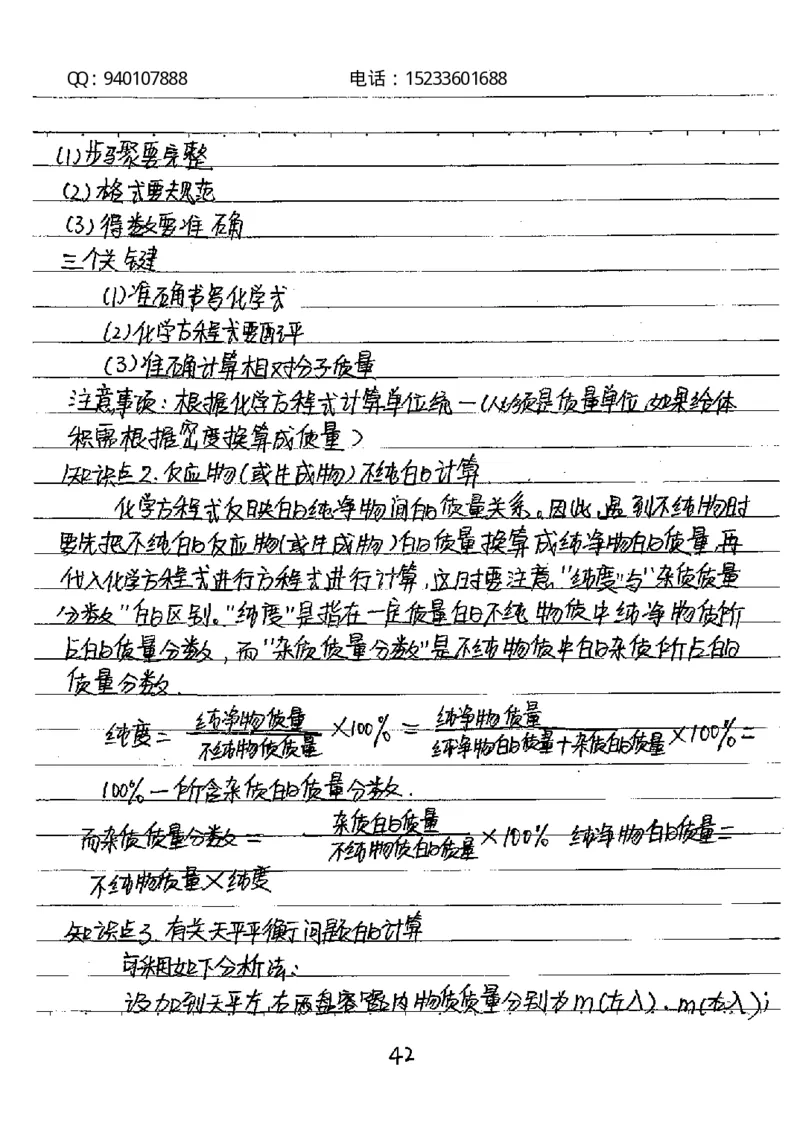 QQ：940107888 电话：15233601688
(1)步骤要完整
(2)格式要规范
(3)得数要准确
三个关键
(1)准确书写化学式
(2)化学方程式要配平
(3)准确计算相对分子质量
注意事项：根据化学方程式计算单位统一(必须是质量单位,如果给体
积需根据密度换算成质量)
知识点2.反应物(或生成物)不纯的计算
化学方程式反映的纯净物间的质量关系。因此,遇到不纯物时
要先把不纯的反应物(或生成物)的质量换算成纯净物的质量,再
代入化学方程式进行方程式进行计算,这时要注意"纯度"与"杂质质量
分数"的区别。"纯度"是指在一定质量的不纯物质中纯净物质所
占的质量分数,而"杂质质量分数"是不纯物质中的杂质所占的
质量分数.
纯度=纯净物质量/不纯物质质量×100%=纯净物质量/纯净物的质量+杂质的质量×100%=
100%-所含杂质的质量分数.
而杂质质量分数=杂质的质量/不纯物质的质量×100% 纯净物的质量=
不纯物质量×纯度
知识点3.有关天平平衡问题的计算
可采用如下分析法:
设加到天平左,右两盘容器内物质质量分别为m(左入).m(右入);
42